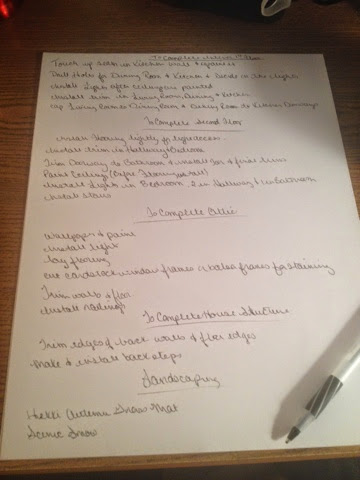 To Complete
Touch up in Kitchen Walls &
Drill Holes for Dining Room & Kitchen &
Install Lights after ceilings are painted
Install trim in Living Room Dining & Kitchen
Living Room to Dining Room & Dining Room to Kitchen Doorways
To Complete Second Floor
Install flooring lightly for
Install trim in Hallway & Bedroom
Trim Doorway to Bathroom & install
Paint Ceiling (Before
Install Lights in Bedroom & in Hallway & in Bathroom
Install stairs
To Complete Attic
Wallpaper & paint
Install light
Lay flooring
Cut cardstock window frames & balsa frames for staining
Trim walls & floor
Install railings
To Complete House Structure
Trim edges of back walls & floor edges
Make & install back steps
Landscaping
Snow Mat
Scenic Snow